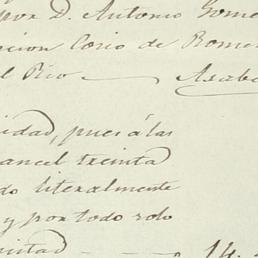 por D. Antonio Gome
cion Corio de Rome
l Rio
idad, pues á las
ancel treinta
do literalmente
y por todo solo